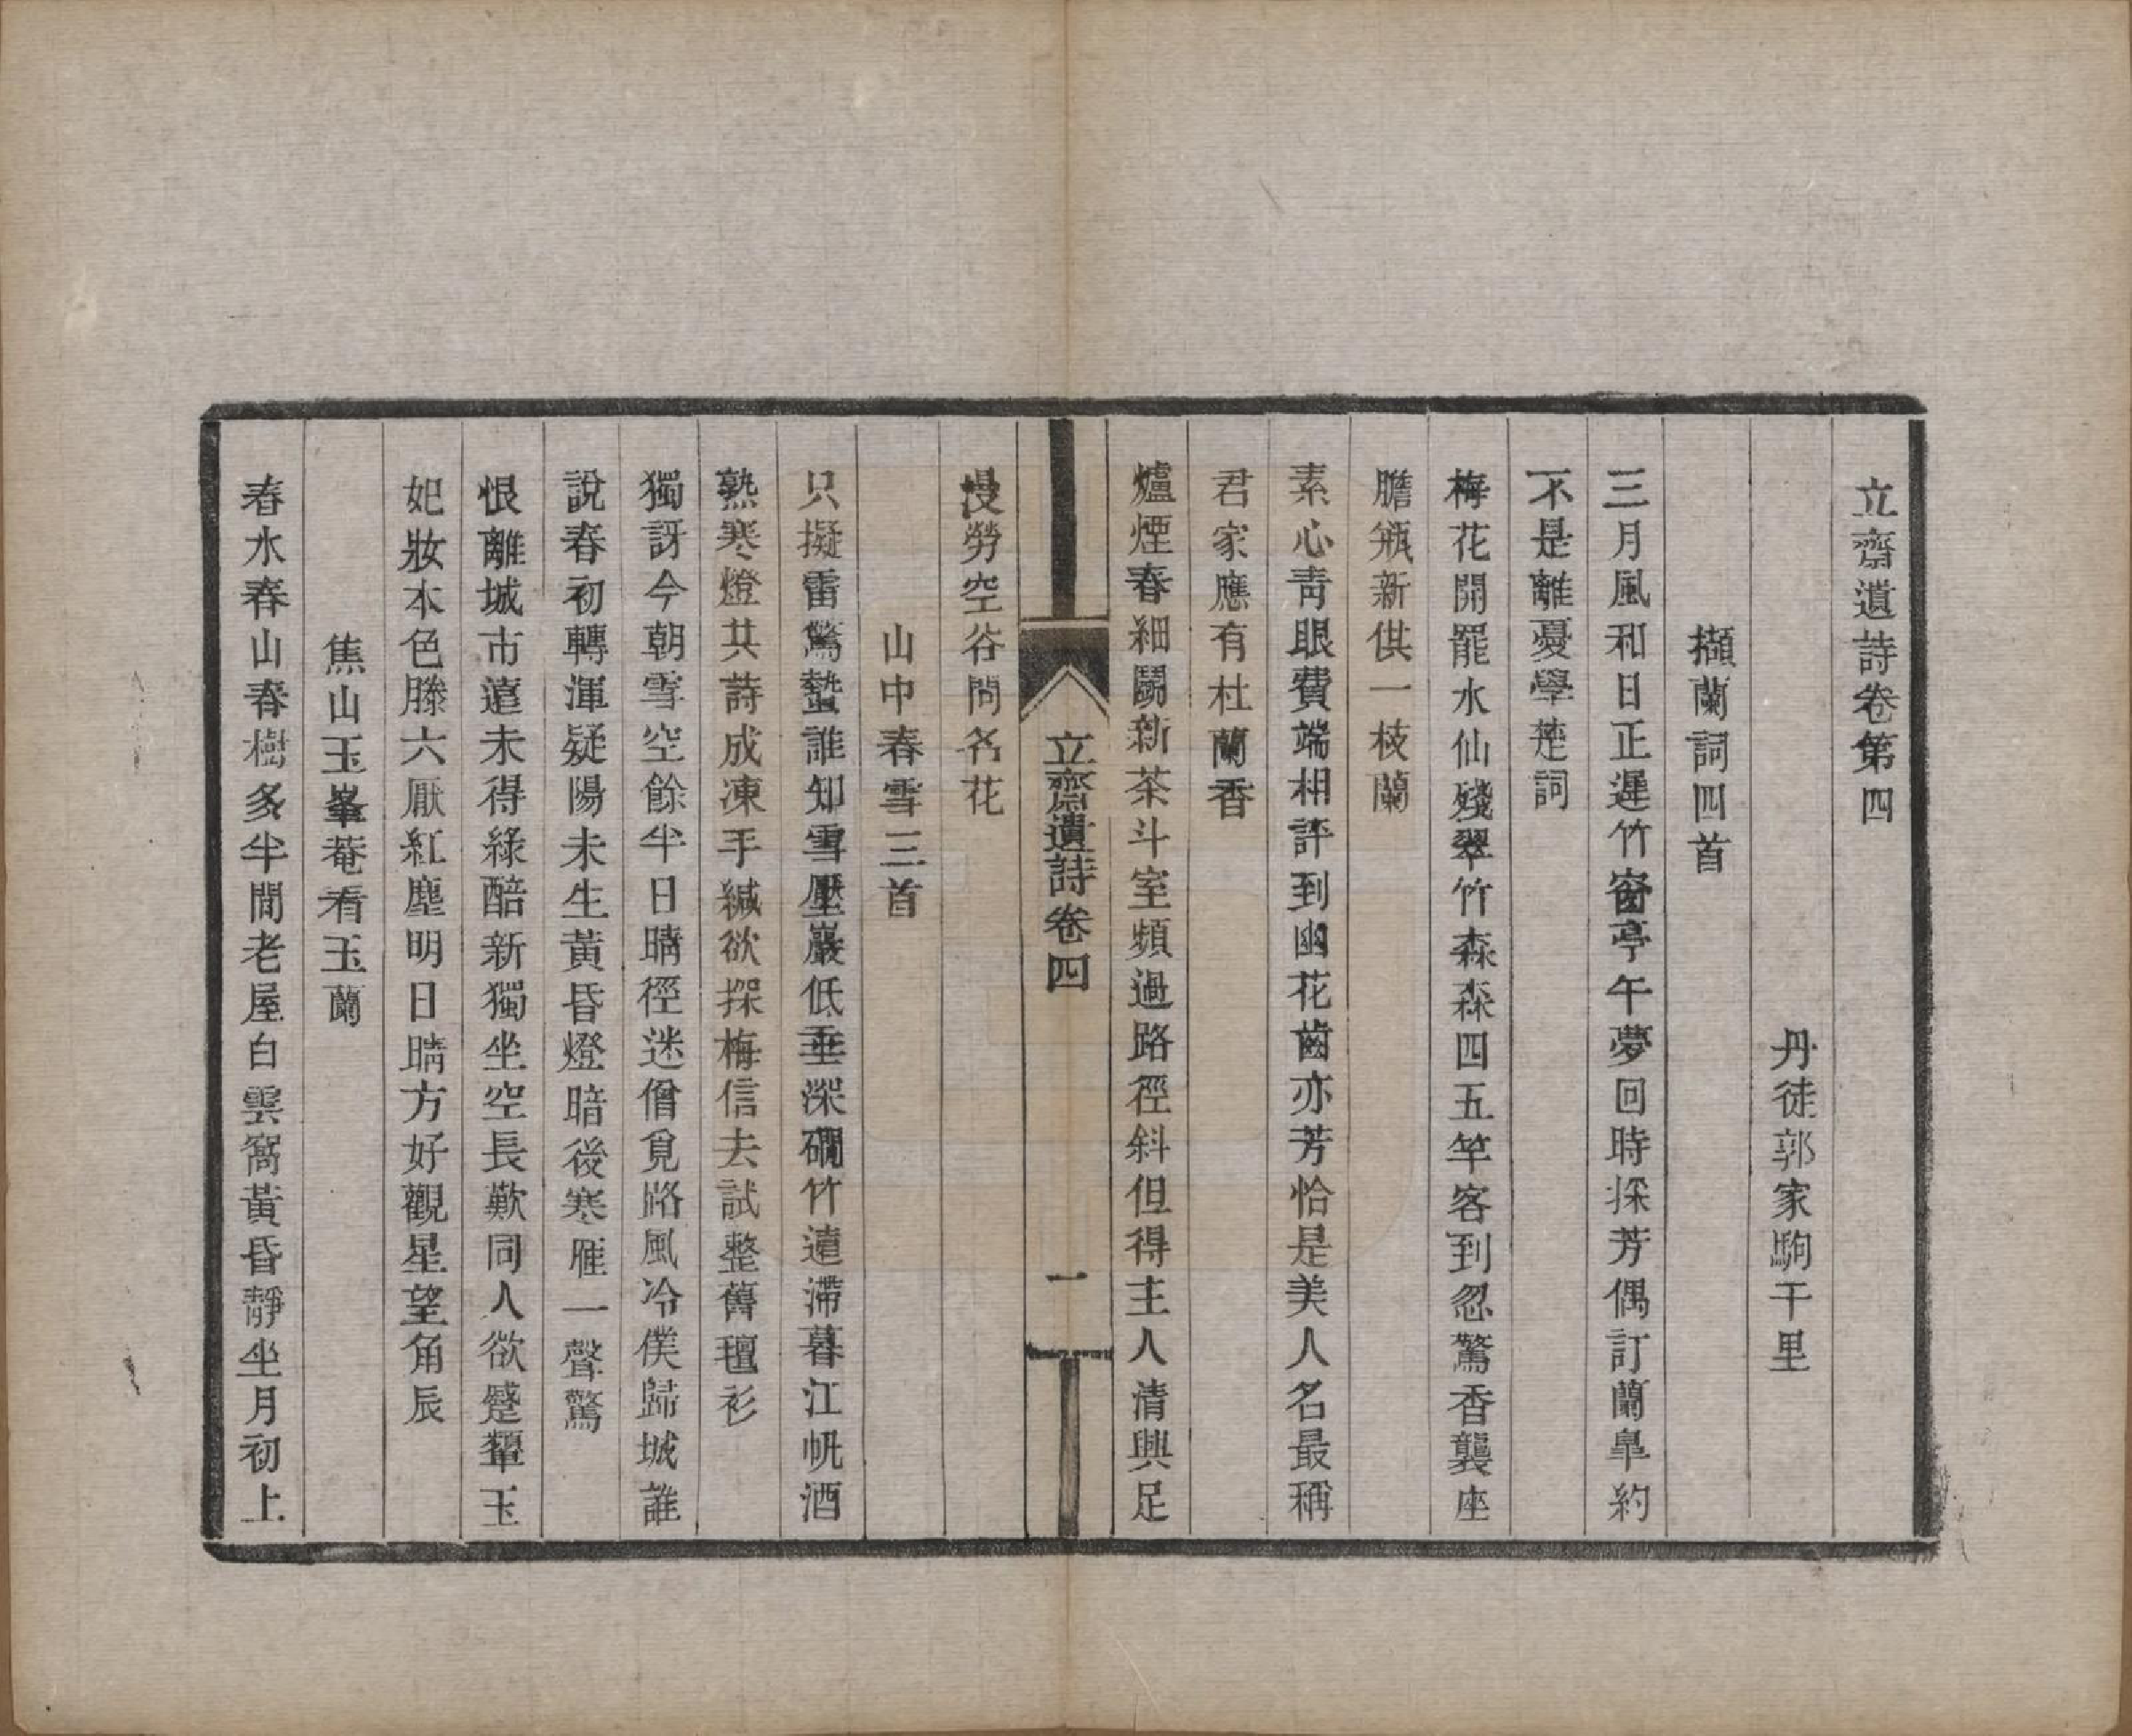 立齋遺詩卷第四
丹徒郭家駒干里
擷蘭詞四首
三月風和日正遲竹窗亭午夢回時探芳偶訂蘭皐約
不是離憂學楚詞
梅花開罷水仙殘翠竹森森四五竿客到忽驚香襲座
膽瓶新供一枝蘭
素心靑眼費端相評到幽花齒亦芳恰是美人名最稱
君家應有杜蘭香
爐煙春細鬭新茶斗室頻過路徑斜但得主人清興足
漫勞空谷問名花
立齋遺詩卷四
一
山中春雪三首
只擬雷驚蟄誰知雪壓巖低垂深磵竹遠滯暮江帆酒
熟寒燈共詩成凍手緘欲探梅信去試整舊氊衫
獨訝今朝雪空餘半日晴徑迷僧覓路風冷僕歸城誰
說春初轉渾疑陽未生黃昏燈暗後寒雁一聲驚
恨離城市遠未得綠醅新獨坐空長歎同人欲蹙顰玉
妃妝本色滕六厭紅塵明日晴方好觀星望角辰
焦山玉峯菴看玉蘭
春水春山春樹多半間老屋白雲窩黃昏靜坐月初上